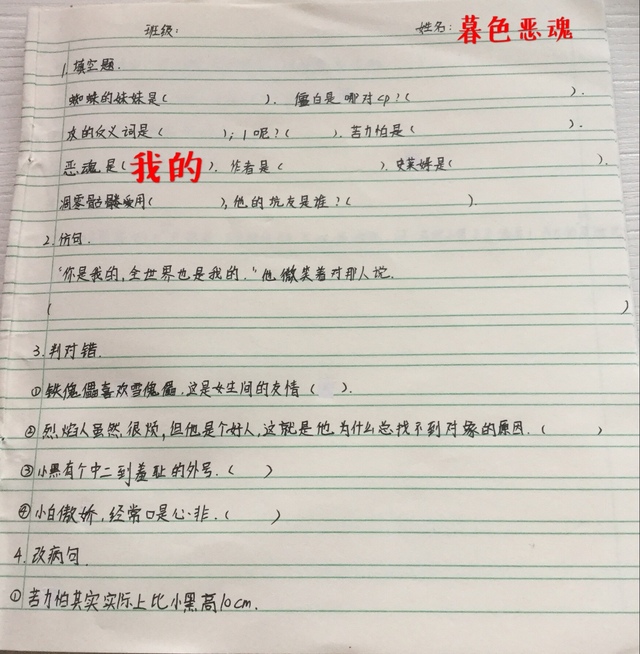 班级: 姓名: 暮色恶魂
1.填空题.
蜘蛛的妹妹是( ). 僵白是哪对cp?( ).
灰的反义词是( );1呢?( ). 苦力怕是( ).
恶魂是(我的). 作者是( ). 史莱姆是( ).
凋零骷髅爱用( ),他的坑友是谁?( ).
2.仿句.
“你是我的,全世界也是我的.”他微笑着对那人说.
( )
3.判对错.
①铁傀儡喜欢雪傀儡.这是女生间的友情( ).
②烈焰人虽然很烦,但他是个好人,这就是他为什么总找不到对象的原因.( )
③小黑有个中二到羞耻的外号.( )
④小白傲娇,经常口是心非.( )
4.改病句.
①苦力怕其实实际上比小黑高10cm.